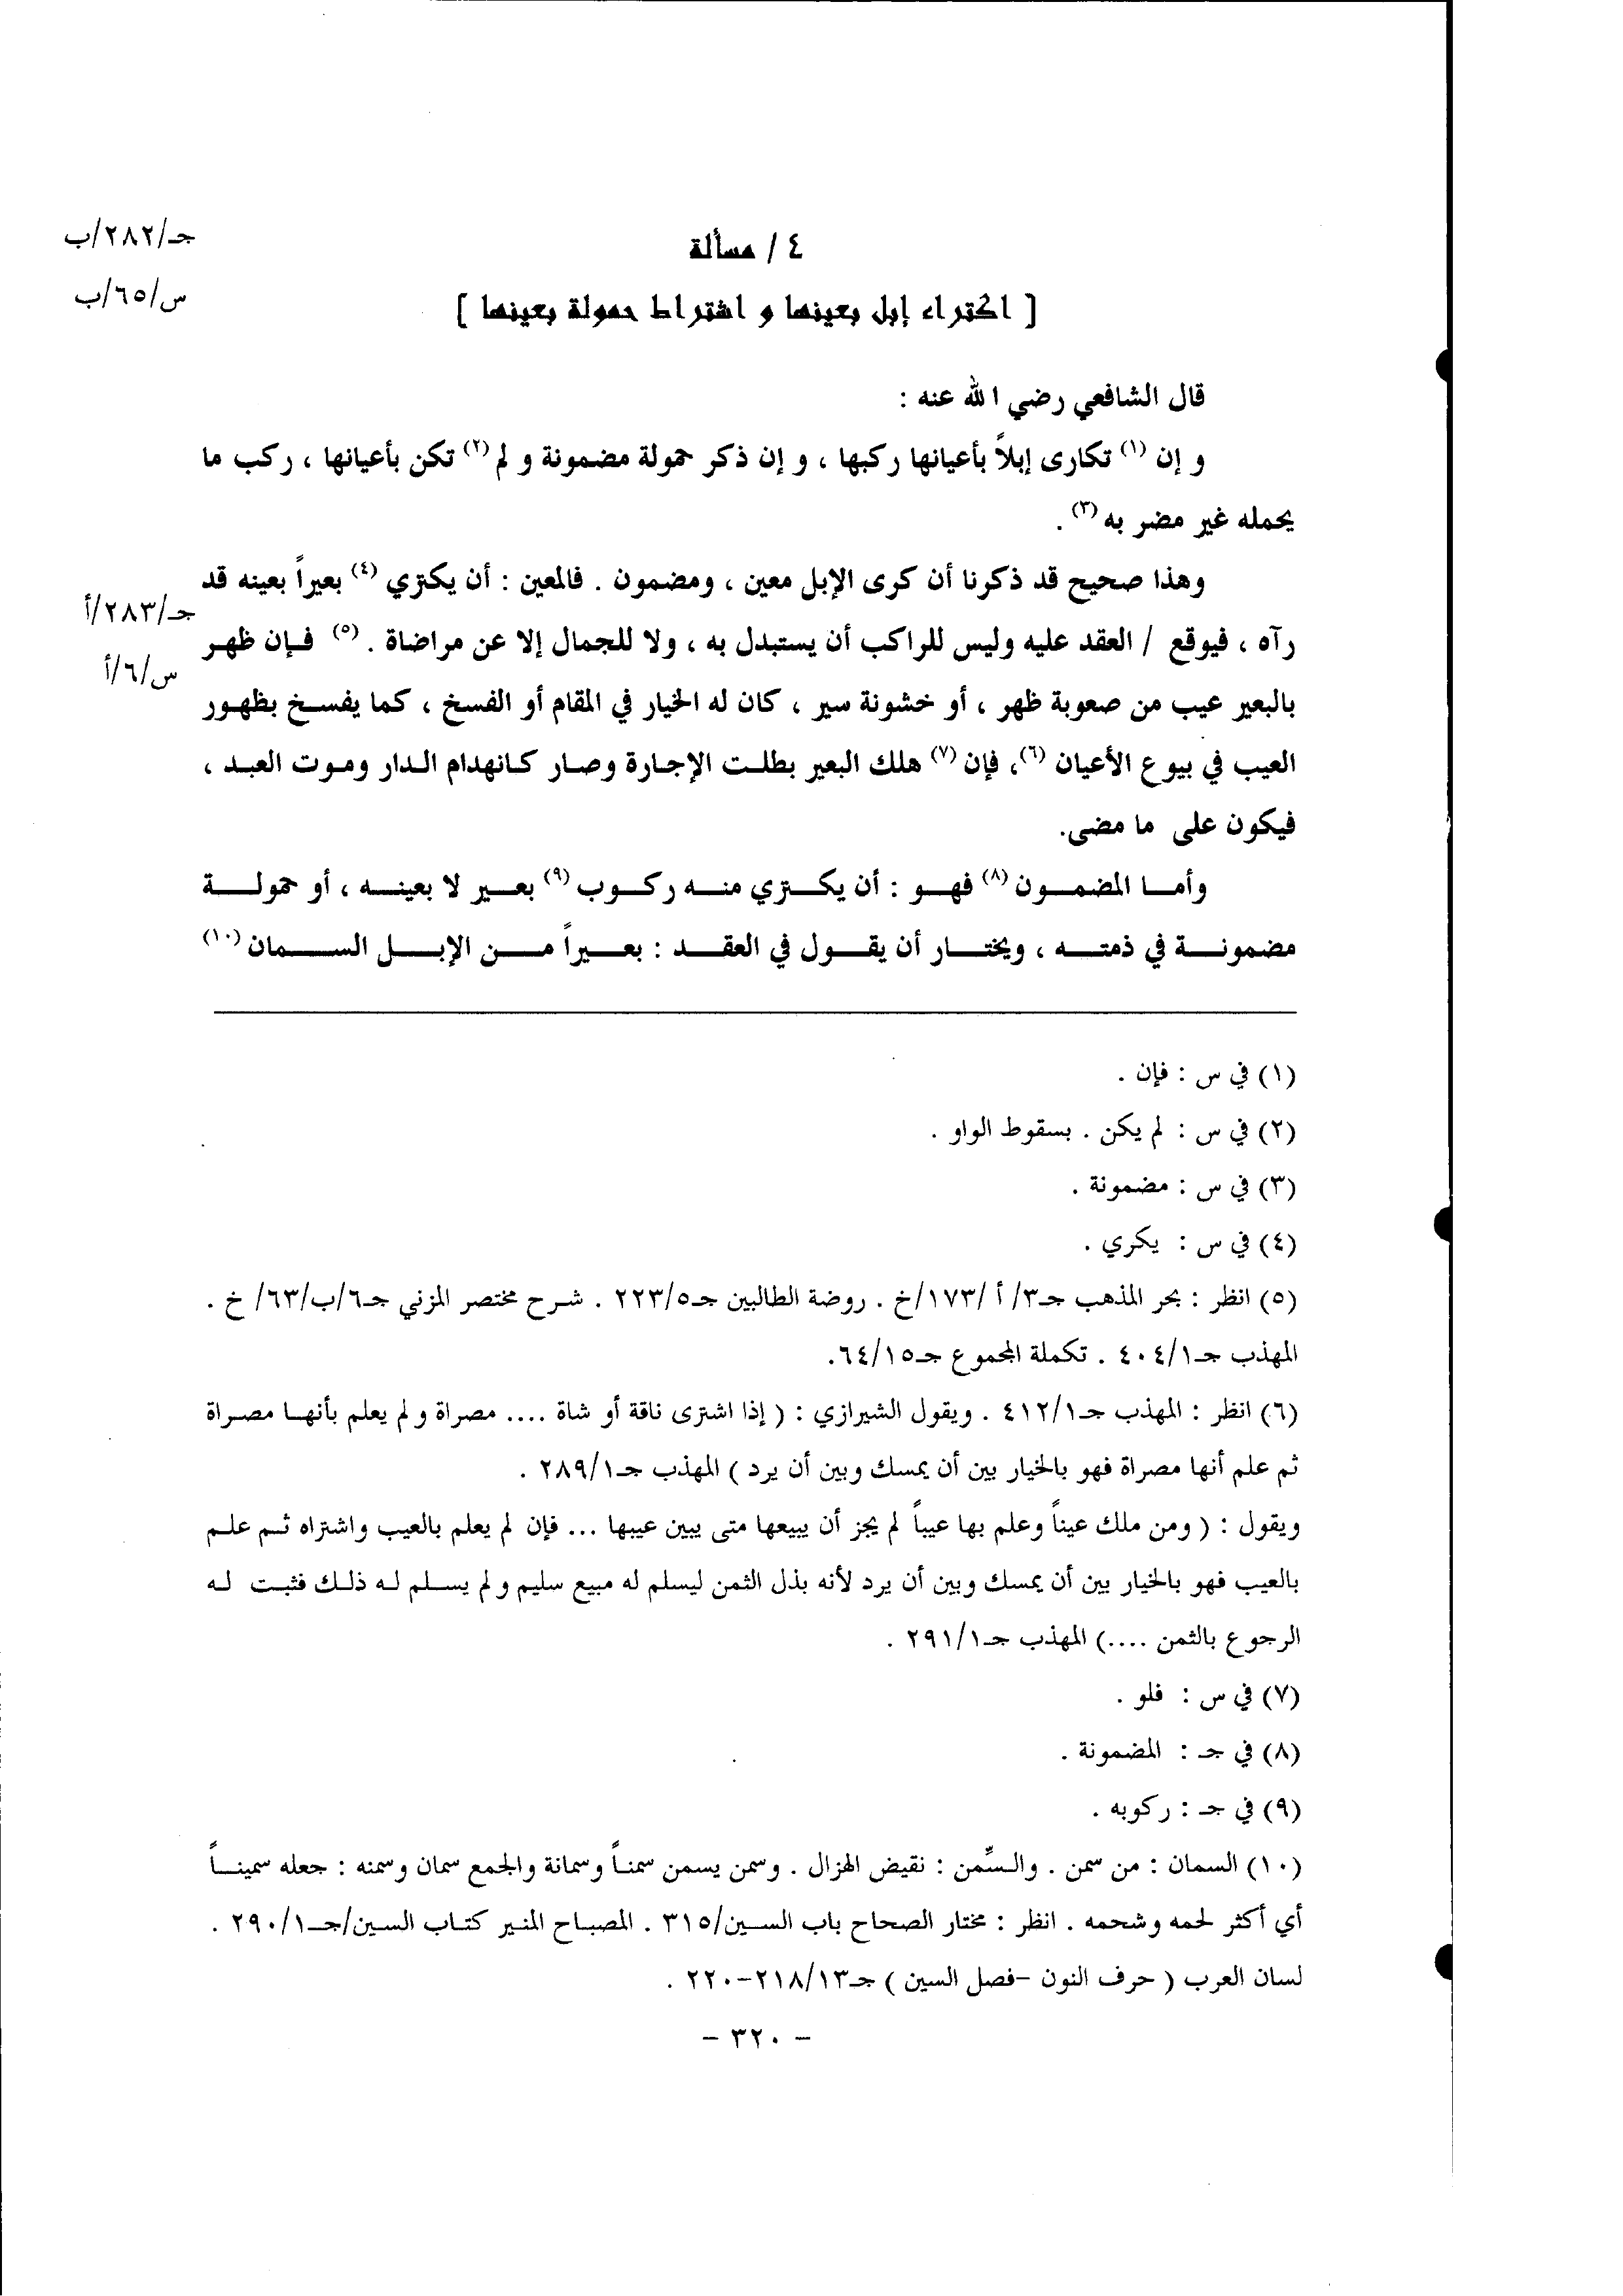 جـ/٢٨٢/ب
٤ / مسألة
س/٦٥/ب
[ اكتراء إبل بعينها و اشتراط حمولة بعينها ]
قال الشافعي رضي الله عنه :
و إن (١) تكارى إبلاً بأعيانها ركبها ، و إن ذكر حمولة مضمونة و لم (٢) تكن بأعيانها ، ركب ما
يحمله غير مضر به (٣) .
وهذا صحيح قد ذكرنا أن كرى الإبل معين ، ومضمون . فالمعين : أن يكتري (٤) بعيراً بعينه قد
جـ/٢٨٣/أ
رآه ، فيوقع / العقد عليه وليس للراكب أن يستبدل به ، ولا للجمال إلا عن مراضاة . (٥) فإن ظهر
س/٦/أ
بالبعير عيب من صعوبة ظهر ، أو خشونة سير ، كان له الخيار في المقام أو الفسخ ، كما يفسخ بظهور
العيب في بيوع الأعيان (٦)، فإن (٧) هلك البعير بطلت الإجارة وصار كانهدام الدار وموت العبد ،
فيكون على ما مضى.
وأما المضمون (٨) فهو : أن يكتري منه ركوب (٩) بعير لا بعينه ، أو حمولة
مضمونة في ذمته ، ويختار أن يقول في العقد : بعيراً من الإبل السمان (١٠)
(١) في س : فإن .
(٢) في س : لم يكن . بسقوط الواو .
(٣) في س : مضمونة .
(٤) في س : يكري .
(٥) انظر : بحر المذهب جـ٣/ أ /١٧٣/خ . روضة الطالبين جـ٢٢٣/٥ . شرح مختصر المزني جـ٦/ب/٦٣/ خ .
المهذب جـ٤٠٤/١ . تكملة المجموع جـ٦٤/١٥.
(٦) انظر : المهذب جـ٤١٢/١ . ويقول الشيرازي : ( إذا اشترى ناقة أو شاة .... مصراة و لم يعلم بأنها مصراة
ثم علم أنها مصراة فهو بالخيار بين أن يمسك وبين أن يرد ) المهذب جـ٢٨٩/١ .
ويقول : ( ومن ملك عيناً وعلم بها عيباً لم يجز أن يبيعها متى يبين عيبها ... فإن لم يعلم بالعيب واشتراه ثم علم
بالعيب فهو بالخيار بين أن يمسك وبين أن يرد لأنه بذل الثمن ليسلم له مبيع سليم و لم يسلم له ذلك فثبت له
الرجوع بالثمن ....) المهذب جـ٢٩١/١ .
(٧) في س : فلو .
(٨) في جـ : المضمونة .
(٩) في جـ : ركوبه .
(١٠) السمان : من سمن . والسِّمن : نقيض الهزال . وسمن يسمن سمناً وسمانة والجمع سمان وسمنه : جعله سميناً
أي أكثر لحمه وشحمه . انظر : مختار الصحاح باب السين/٣١٥ . المصباح المنير كتاب السين/جـ٢٩٠/١ .
لسان العرب ( حرف النون -فصل السين ) جـ٢١٨/١٣-٢٢٠ .
- ٣٢٠ -